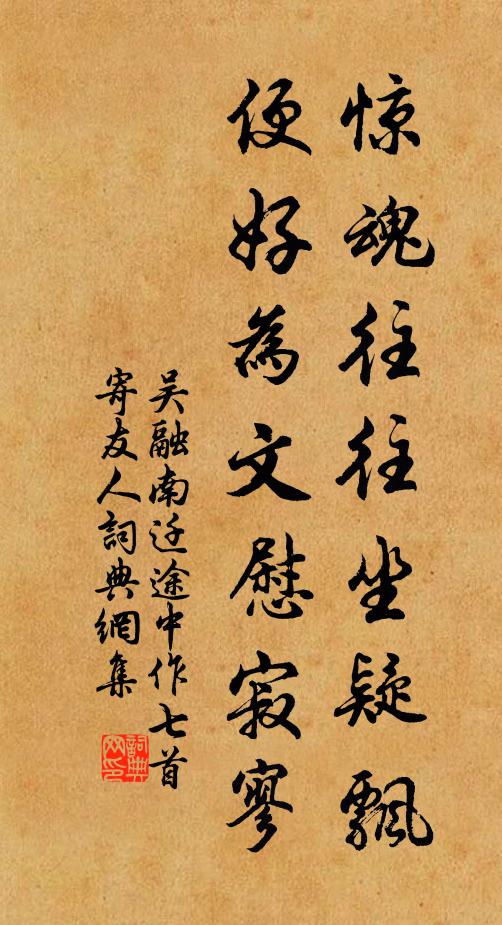 惊魂往往坐疑飄
便好為文慰寂寥
吴融南迁途中作七首
寄友人詞典網集
詞典网印